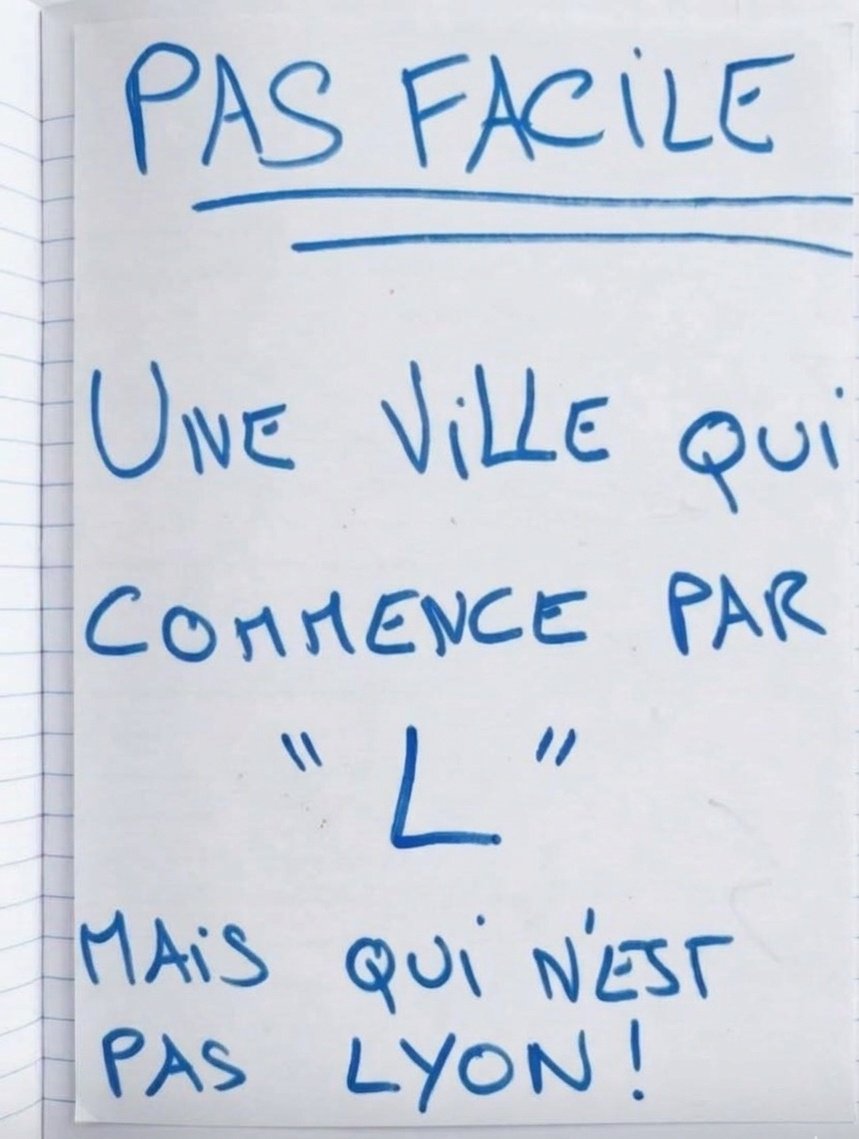 PAS FACILE
UNE VILLE QUI
COMMENCE PAR
"L"
MAIS QUI N'EST
PAS LYON!